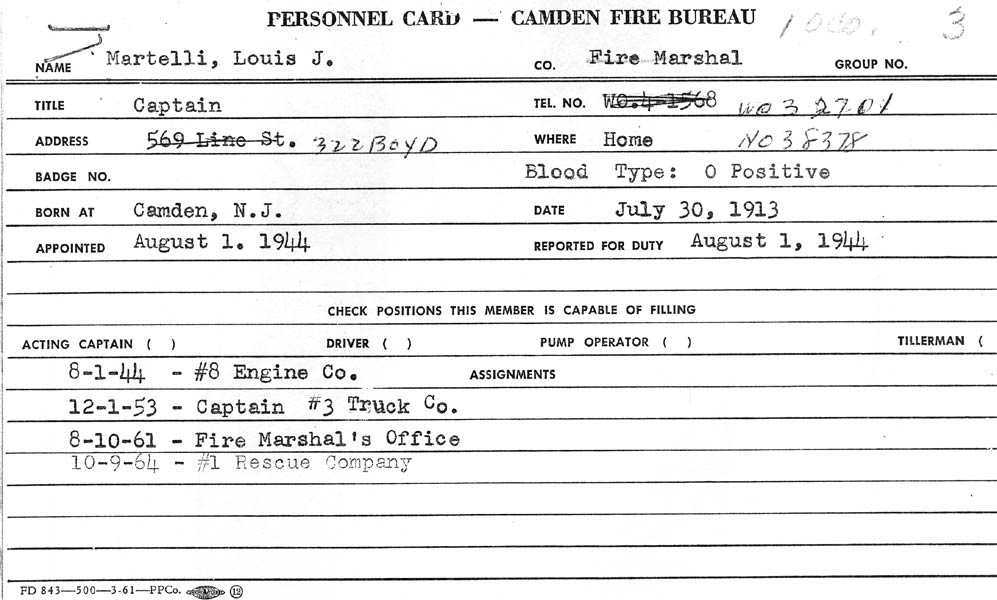 PERSONNEL CARD — CAMDEN FIRE BUREAU 3
NAME Martelli, Louis J. CO. Fire Marshal GROUP NO.
TITLE Captain TEL. NO. WO.4-1568 WO 3 2701
ADDRESS 569 Line St. 322 BOYD WHERE Home NO 38378
BADGE NO. Blood Type: O Positive
BORN AT Camden, N.J. DATE July 30, 1913
APPOINTED August 1. 1944 REPORTED FOR DUTY August 1, 1944
CHECK POSITIONS THIS MEMBER IS CAPABLE OF FILLING
ACTING CAPTAIN ( ) DRIVER ( ) PUMP OPERATOR ( ) TILLERMAN (
8-1-44 - #8 Engine Co. ASSIGNMENTS
12-1-53 - Captain #3 Truck Co.
8-10-61 - Fire Marshal's Office
10-9-64 - #1 Rescue Company
FD 843—500—3-61—PPCo. 12